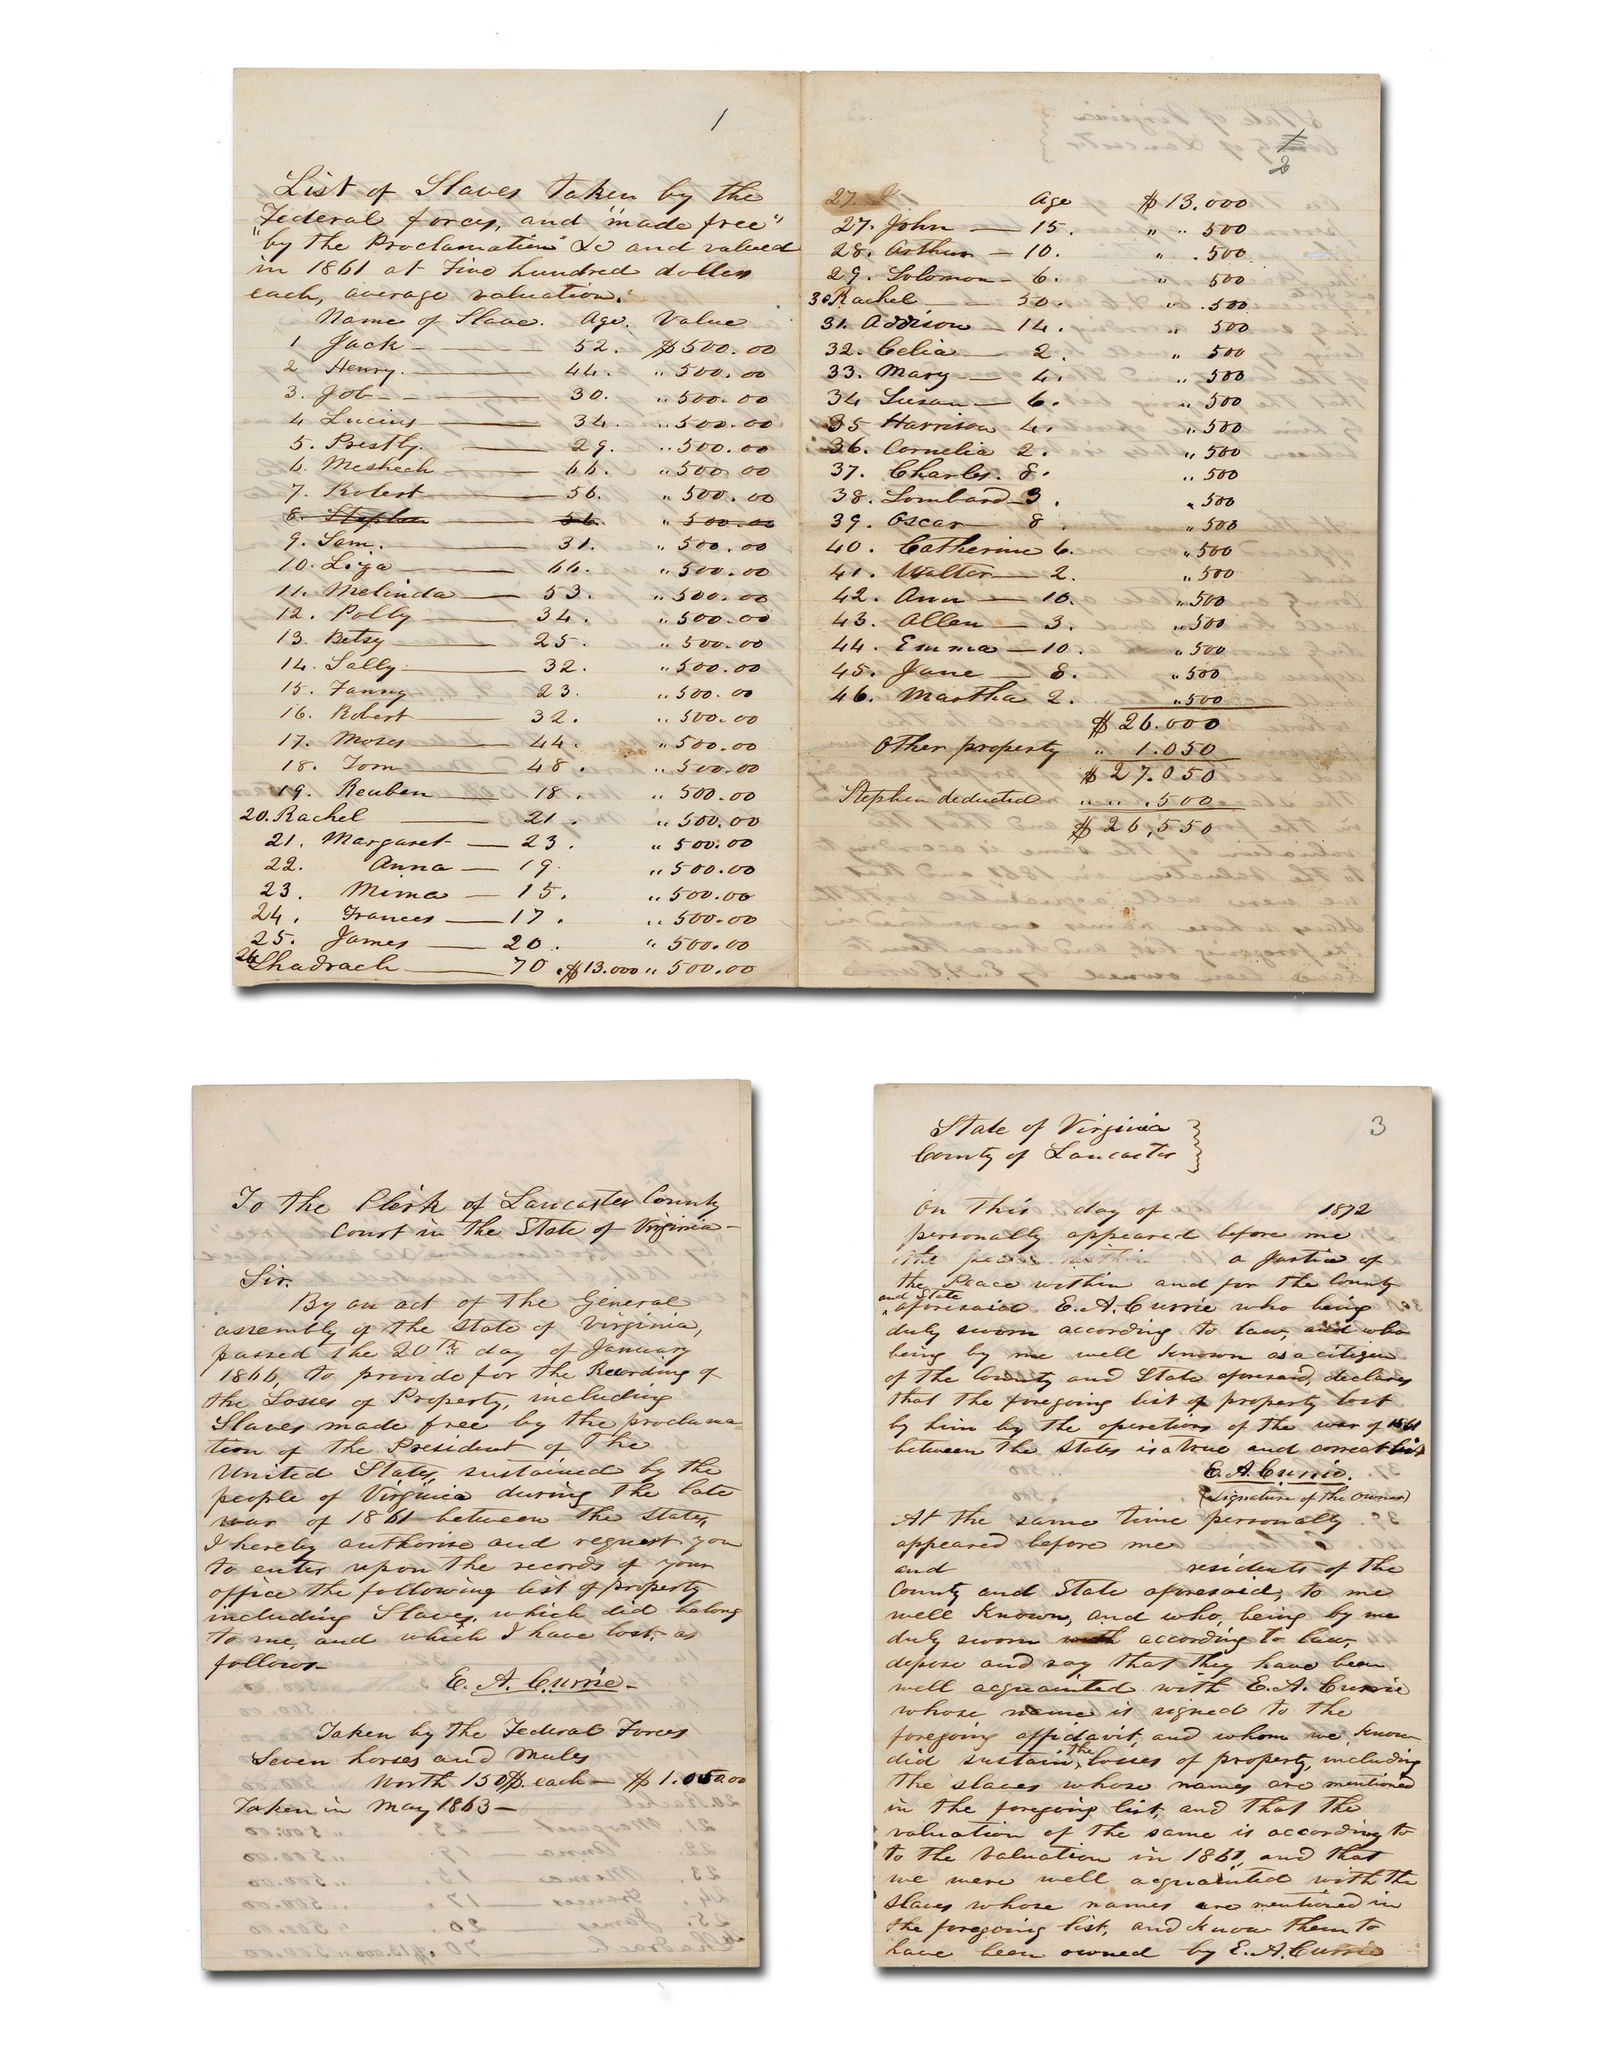 1
List of Slaves taken by the
Federal forces, and "made free"
"by the Proclamation" &c and valued
in 1861 at Five hundred dollars
each, average valuation.
Name of Slave. Age. Value
1 Jack 52. $500.00
2 Henry. 44. " 500.00
3. Job 30. " 500.00
4 Lucius 34. " 500.00
5. Prestly. 29. " 500.00
6. Meshech 66. " 500.00
7. Robert 56. " 500.00
8. Stephen 56. " 500.00
9. Sam. 31. " 500.00
10. Liza 66. " 500.00
11. Melinda 53. " 500.00
12. Polly 34. " 500.00
13. Betsy 25. " 500.00
14. Sally 32. " 500.00
15. Fanny 23. " 500.00
16. Robert 32. " 500.00
17. Moses 44. " 500.00
18. Tom 48. " 500.00
19. Reuben 18. " 500.00
20. Rachel 21. " 500.00
21. Margaret 23. " 500.00
22. Anna 19. " 500.00
23. Mima 15. " 500.00
24. Frances 17. " 500.00
25. James 20. " 500.00
26 Shadrach 70. $13.000 " 500.00
2
27. Age $13.000
27. John 15. " " 500
28. Arthur 10. " . 500
29. Solomon 6. " 500
30 Rachel 50. " . 500
31. Addison 14. " 500
32. Celia 2. " 500
33. Mary 4. " 500
34 Susan 6. " 500
35 Harrison 4. " 500
36. Cornelia 2. " 500
37. Charles. 8. " 500
38. Lombard 3. " 500
39. Oscar 8. " 500
40. Catherine 6. " 500
41. Walter 2. " 500
42. Ann 10. " 500
43. Allen 3. " 500
44. Emma 10. " 500
45. Jane 8. " 500
46. Martha 2. " 500
$26.000
Other property " 1.050
$27.050
Stephen deducted " " . 500
$26,550
To the Clerk of Lancaster County
Court in the State of Virginia—
Sir.
By an act of the General
assembly of the State of Virginia,
passed the 20th day of January
1866, to provide for the Recording of
the Losses of Property, including
Slaves made free by the proclama-
tion of the President of The
United States, sustained by the
people of Virginia during the late
war of 1861 between the states,
I hereby authorise and request you
to enter upon the records of your
office the following list of property
including Slaves, which did belong
to me, and which I have lost, as
follows—
E. A. Currie—
Taken by the Federal Forces
Seven horses and Mules
Worth 150$ each — $1.050.00
Taken in May 1863—
3
State of Virginia
County of Lancaster
On this day of 1872
personally appeared before me
the a Justice of
the Peace within and for the County
and State
aforesaid E. A. Currie who being
duly sworn according to law, and who
being by me well known as a citizen
of the County and State aforesaid, declares
that the foregoing list of property lost
by him by the operations of the war of 1861
between the states is a true and correct list
E. A. Currie.
(Signature of the owner)
At the same time personally
appeared before me
and residents of the
County and State aforesaid, to me
well Known, and who, being by me
duly sworn with according to law,
depose and say that they have been
well acquainted with E. A. Currie
whose name is signed to the
foregoing affidavit, and whom we know
did sustain the losses of property, including
the slaves whose names are mentioned
in the foregoing list, and that the
valuation of the same is according to
to the valuation in 1861, and that
we were well acquainted with the
slaves whose names are mentioned in
the foregoing list, and know them to
have been owned by E. A. Currie